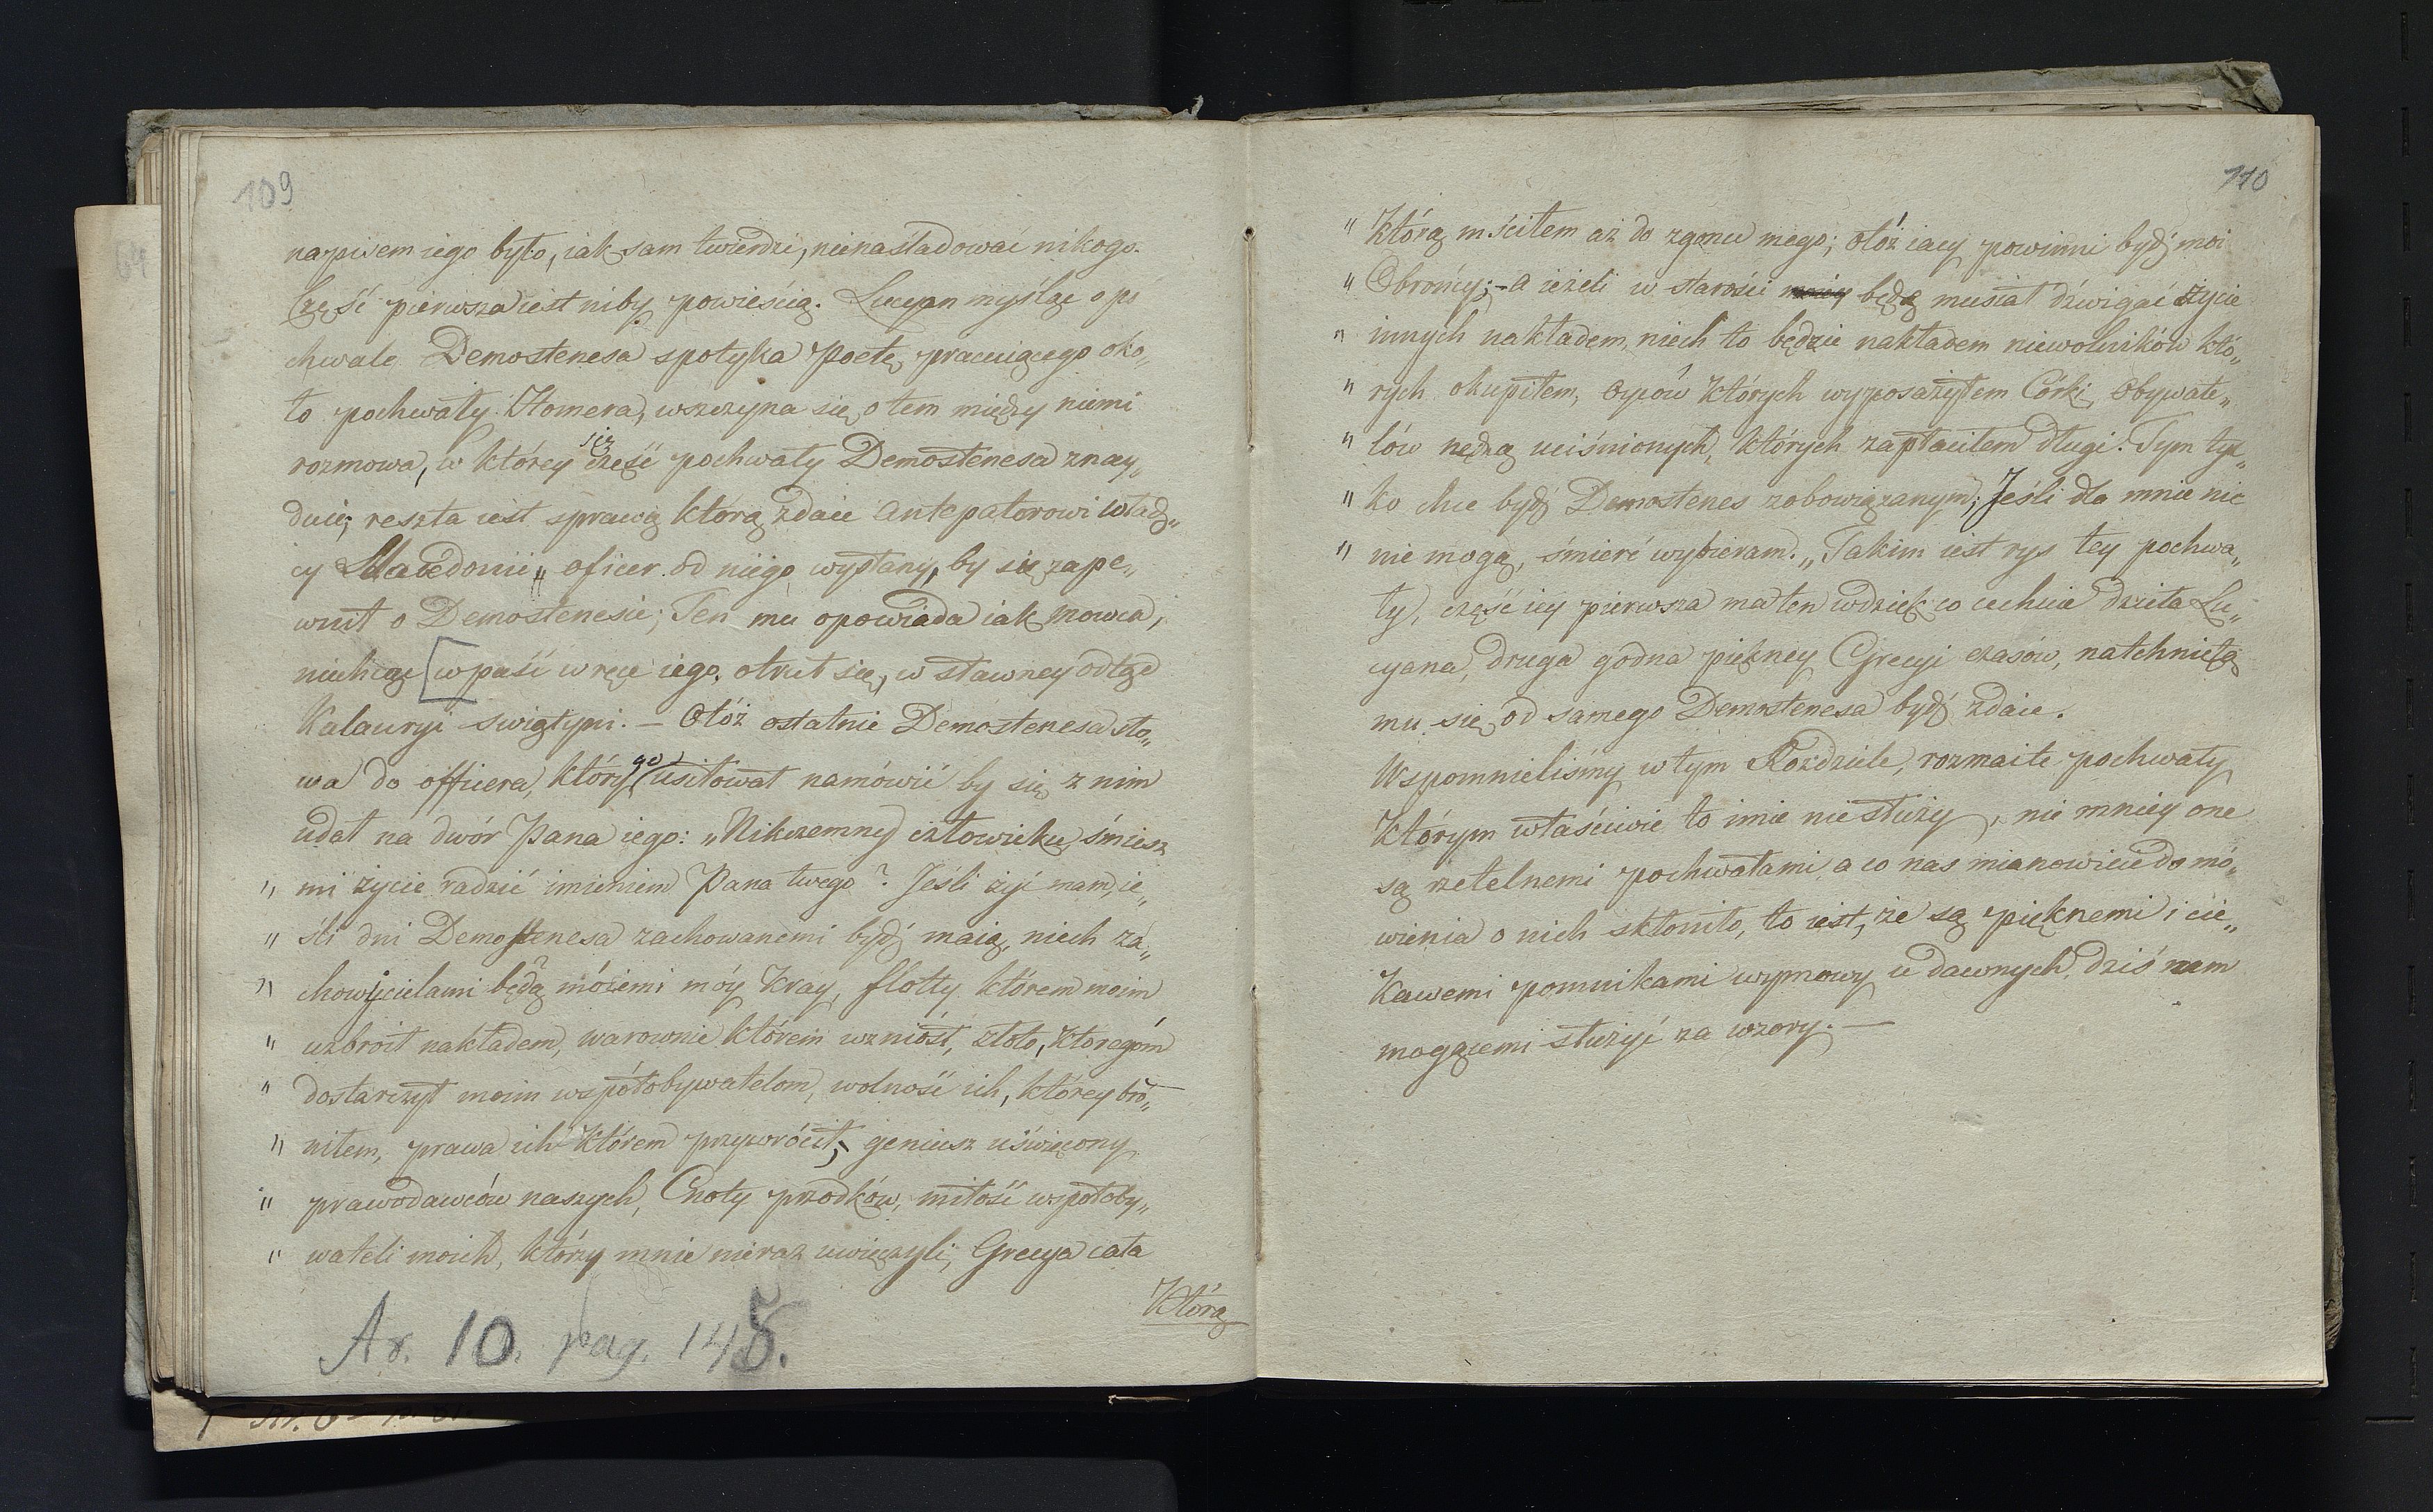 109
napisem iego było, iak sam twierdzi, nienaśladować nikogo.
Część pierwsza iest niby powieścią. Lucyan myśląc o po
chwale Demostenesa spotyka Poetę, pracuiącego oko„
ło pochwały Homera, wszczyna się o tem między niemi
rozmowa, w którey się część pochwały Demostenesa znay„
duie; reszta iest sprawą którą zdaie Antepatorowi władz„
cy Macedonii„ oficer od niego wysłany, by się zape„
wnił o Demostenesie; Ten mu opowiada iak mowca,
niechcąc [wpaść w ręce iego, otruł się, w sławney odtąd
Kalauryi swiątyni. — Otóż ostatnie Demostenesa sło„
wa do officera, który go usiłował namówić by się z nim
udał na dwór Pana iego: „Nikczemny człowieku, śmiesz
„ mi życie radzić imieniem Pana twego? Jeśli żyć mam, ie„
„ śli dni Demostenesa zachowanemi bydź maią, niech za„
„ chowycielami będą moiemi móy kray, flotty którem moim
„ uzbroił nakładem, warownie którem wzniósł, złoto, któregóm
„ dostarczył moim współobywatelom, wolność ich, którey bro„
„ niłem, prawa ich którem przywrócił, geniusz uświęcony
„ prawodawców naszych, Cnoty przodków, miłość wspołoby„
„ wateli moich, którzy mnie nieraz uwięczyli; Grecya cała
Którą
Ar. 10. pag. 145.
110
„ Którą mściłem aż do zgonu mego; otóż iacy powinni bydź moi
„ Obrońcy; – a ieżeli w starości będę musiał dźwigać życie
„ innych nakładem, niech to będzie nakładem niewolników któ„
„ rych okupiłem, Oyców których wyposażyłem Córki, Obywate„
„ lów nędzą uciśnionych, których zapłaciłem długi. Tym tyl„
„ ko chce bydź Demostenes zobowiązanym; Jeśli dla mnie nic
„ nie mogą, śmierć wybieram. „Takim iest rys tey pochwa„
ły, część iey pierwsza ma ten wdzięk co cechuie dzieła Lu„
cyana, druga godna piękney Grecyi czasów, natchniętą
mu się od samego Demostenesa bydź zdaie.
Wspomnieliśmy w tym Rozdziele, rozmaite pochwały
Którym właściwie to imie nie służy, nie mniey one
są rzetelnemi pochwałami, a co nas mianowicie do mó„
wienia o nich skłoniło, to iest, że są pięknemi i cie„
kawemi pomnikami wymowy u dawnych, dziś nam
mogącemi służyć za wzory. —